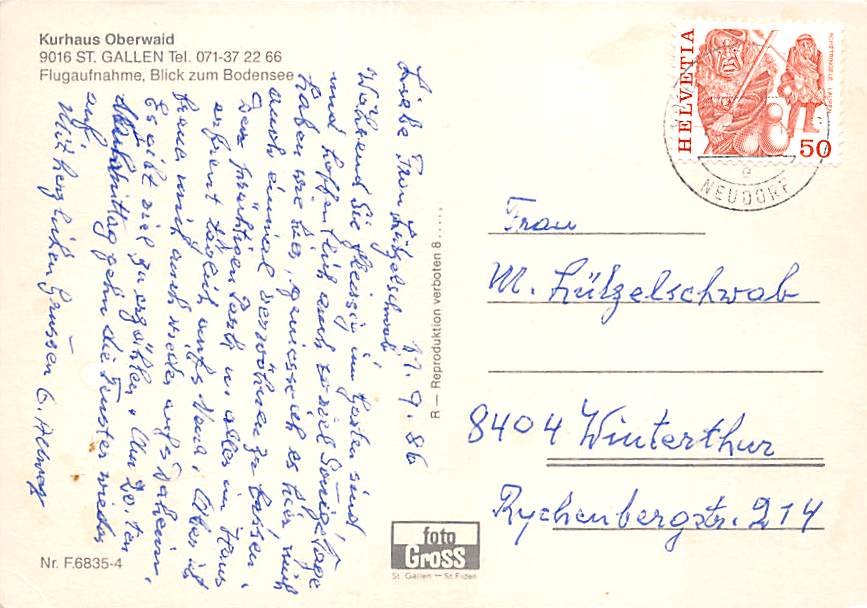 Kurhaus Oberwaid
9016 ST. GALLEN Tel. 071-37 22 66
Flugaufnahme, Blick zum Bodensee
Liebe Frau Lützelschwab 17.9.86
Während Sie fleissig im Garten sind
und hoffentlich auch so viel Sonnige Tage
haben wie hier, geniesse ich es hier mich
auch einmal verwöhnen zu lassen.
Der prächtigen Park u. alles im Haus
erfreut täglich aufs Neue. Aber ich
freue mich auch wieder aufs Daheim,
Es gibt viel zu erzählen. Am 20. ten
Nachmittag gehn die Fenster wieder
auf.
Mit herzlichen Grüssen G.
R — Reproduktion verboten 8.....
HELVETIA
50
NEUDORF
Frau
M. Lützelschwab
8404 Winterthur
Rychenbergstr. 214
foto
Gross
St. Gallen — St. Fiden
Nr. F.6835-4